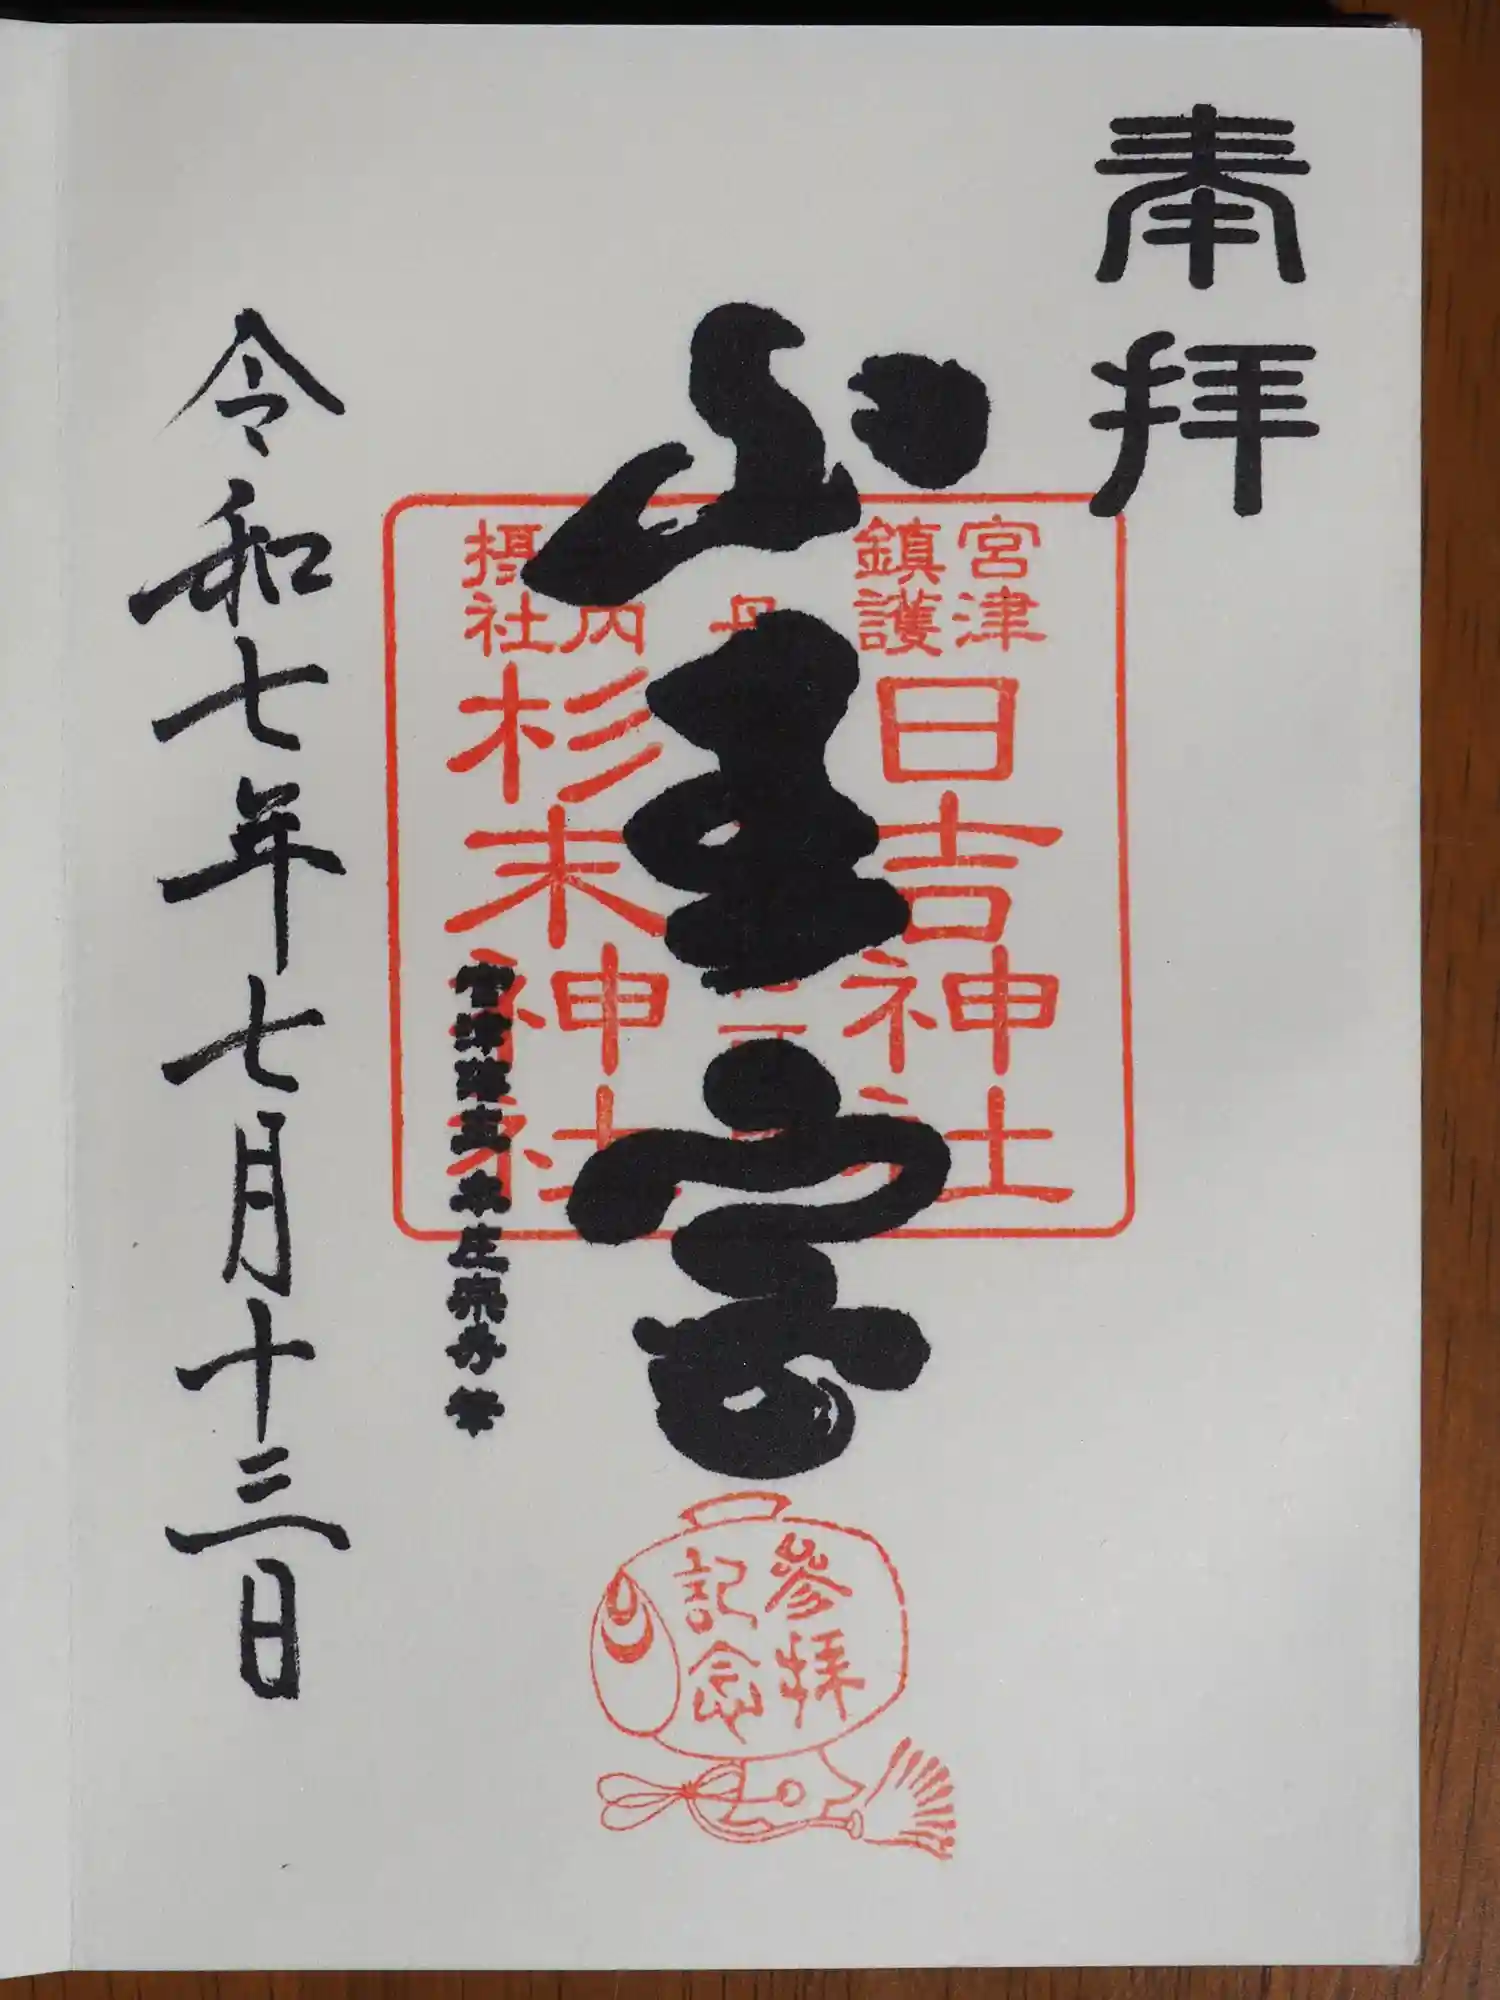 奉拝
宮津
鎮護
日吉神社
山王宮
丹
内
摂社
杉末神社
宮津藩主 本庄宗秀筆
令和七年七月十三日
参拝
記念